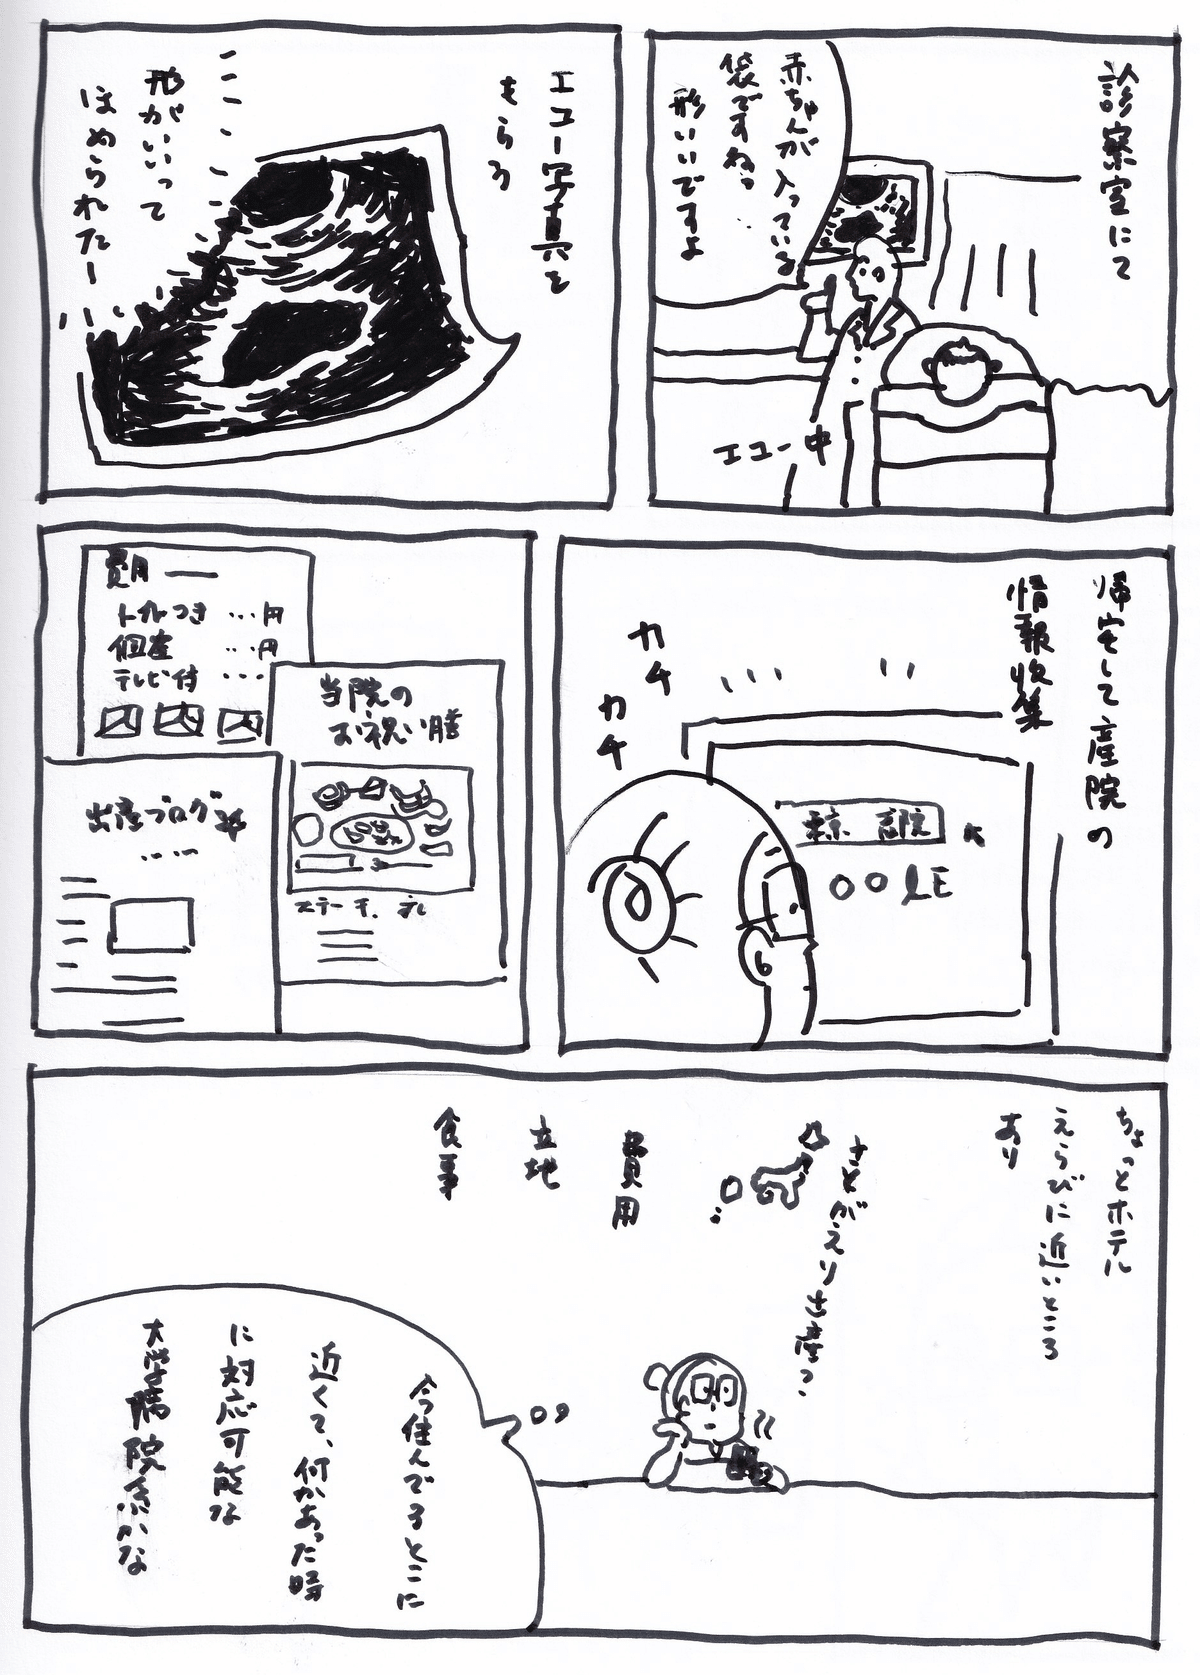 診察室にて
赤ちゃんが入っている
袋ですねっ
形いいですよ
エコー中
エコー写真を
もらう
形がいいって
ほめられたー
帰宅して産院の
情報収集
カチ
カチ
東京 産院
OOLE
費用
トイレつき …円
個室 …円
テレビ付 …
当院の
お祝い膳
出産ブログ
ちょっとホテル
えらびに近いところ
あり
さとがえり出産?
費用
立地
食事
今住んでるとこに
近くて、何かあった時
に対応可能な
大学病院系かな